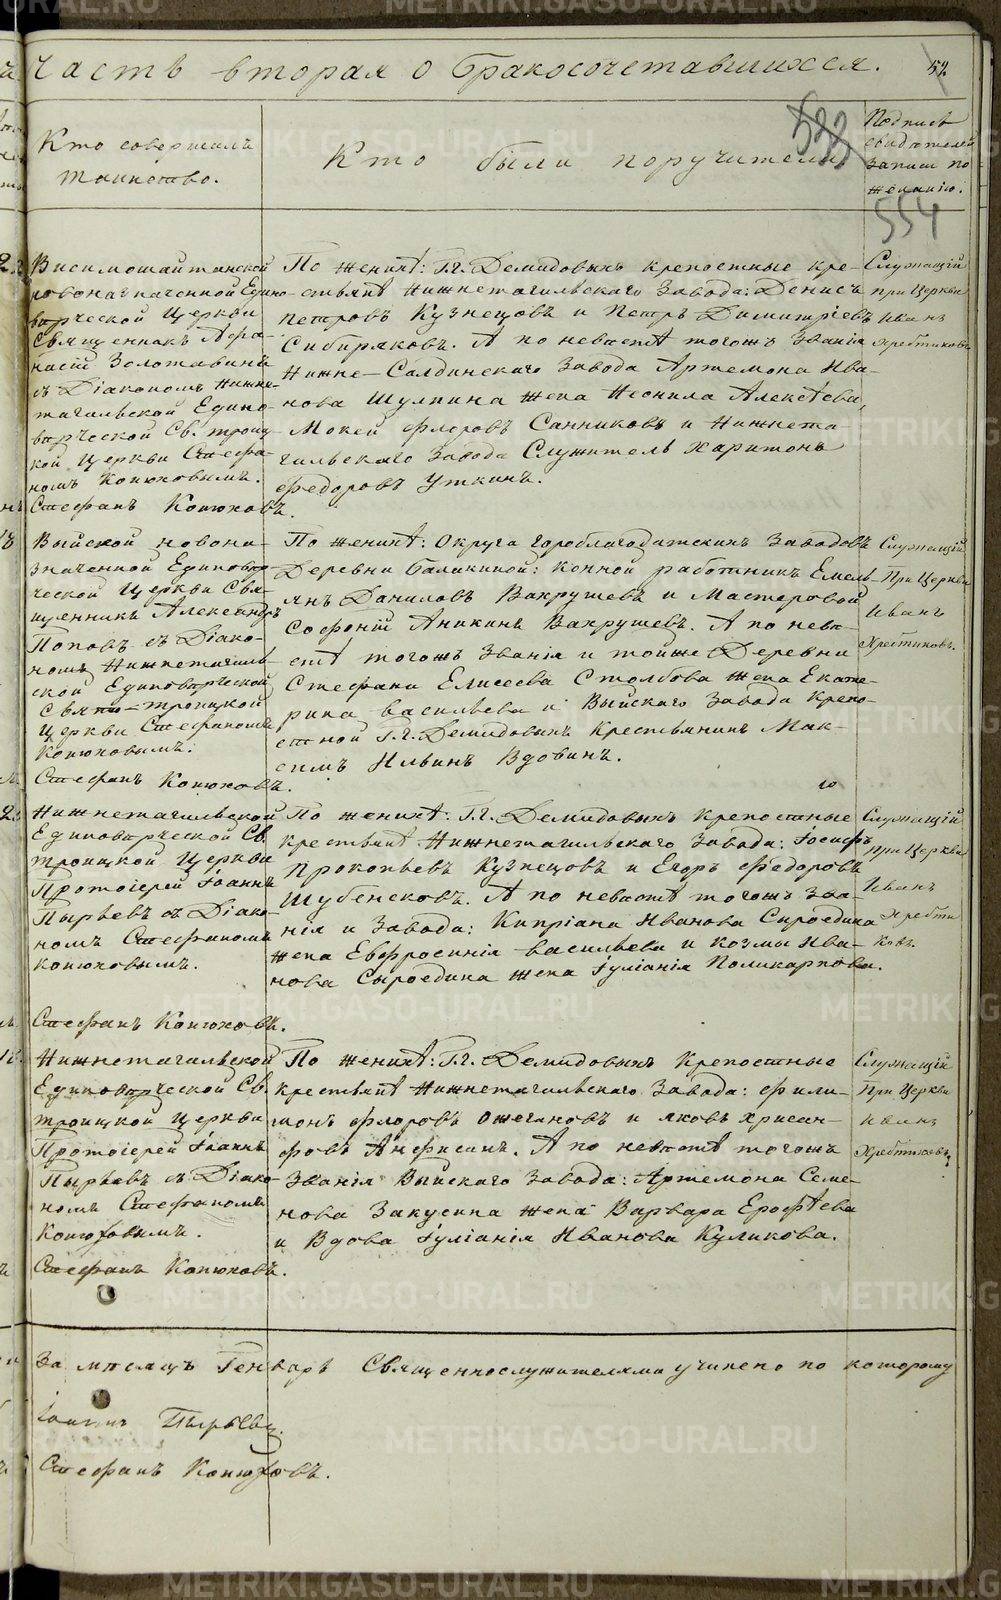 Часть вторая о бракосочетавшихся.
52
Кто совершалъ
таинство.
Кто были поручители
533
Подпись
свидѣтелей
записи по
желанію.
554
Висимошайтанской
новоназначенной Едино-
вѣрческой Церкви
Священникъ Афа-
насій Золотавинъ
съ Діакономъ Нижне-
тагильской Едино-
вѣрческой Св. троиц-
кой Церкви Стефа-
номъ Конюховымъ.
Стефанъ Конюховъ.
По женихѣ: Г.г. Демидовыхъ крепостные кре-
стьянѣ Нижнетагильскаго Завода: Денисъ
Петровъ Кузнецовъ и Петръ Димитріевъ
Сибиряковъ. А по невѣстѣ тогожъ званія
Нижне-Салдинскаго Завода Артемона Ива-
нова Шулпина жена Неонила Алексѣева,
Мокей Флоровъ Санниковъ и Нижнета-
гильскаго Завода Служитель Харитонъ
Федоровъ Уткинъ.
Служащій
при Церкви
Иванъ
Хребтиковъ
Выйской новона-
значенной Единовѣр-
ческой Церкви Свя-
щенникъ Александръ
Поповъ съ Діако-
номъ Нижнетагиль-
ской Единовѣрческой
Свято-троицкой
Церкви Стефаномъ
Конюховымъ.
Стефанъ Конюховъ.
По женихѣ: Округа Гороблагодатскихъ Заводовъ
Деревни Балакиной: конной работникъ Емель-
янъ Даниловъ Вахрушевъ и Мастеровой
Софоній Аникинъ Вахрушевъ. А по невѣ-
стѣ тогожъ Званія и тойже Деревни
Стефана Елисеева Столбова жена Екате-
рина Васильева и Выйскаго Завода крепо-
стной Г.г. Демидовыхъ Крестьянинъ Мак-
симъ Ильинъ Вдовинъ.
Служащій
При Церкви
Иванъ
Хребтиковъ.
Нижнетагильской
Единовѣрческой Св.
троицкой Церкви
Протоіерей Іоаннъ
Пырьевъ съ Діако-
номъ Стефаномъ
Конюховымъ.
Стефанъ Конюховъ.
По женихѣ: Г.г. Демидовыхъ Крепостные
крестьянѣ Нижнетагильскаго Завода: Іосифъ
Прокопьевъ Кузнецовъ и Егоръ Федоровъ
Шубенсковъ. А по невѣстѣ тогожъ Зва-
нія и Завода: Кипріана Иванова Сыроедина
жена Евфросинія Васильева и Козмы Ива-
нова Сыроедина жена Іуліанія Поликарпова.
Служащій
при Церкви
Иванъ
Хребти
ковъ.
Нижнетагильской
Единовѣрческой Св.
троицкой Церкви
Протоіерей Іоаннъ
Пырьевъ съ Діако-
номъ Стефаномъ
Конюховымъ.
Стефанъ Конюховъ.
По женихѣ: Г.г. Демидовыхъ Крепостные
крестьянѣ Нижнетагильскаго Завода: Фили-
монъ Флоровъ Ожегановъ и Яковъ Хрисан-
фовъ Анфисинъ. А по невѣстѣ тогожъ
Званія Выйскаго Завода: Артемона Семе-
нова Закусина жена Варвара Ерофѣева
и Вдова Іуліанія Иванова Куликова.
Служащій
При Церкви
Иванъ
Хребтиковъ
За мѣсяцъ Генварь Священнослужителями учинено по которому
Іоаннъ Пырьевъ.
Стефанъ Конюховъ.
METRIKI.GASO-URAL.RU